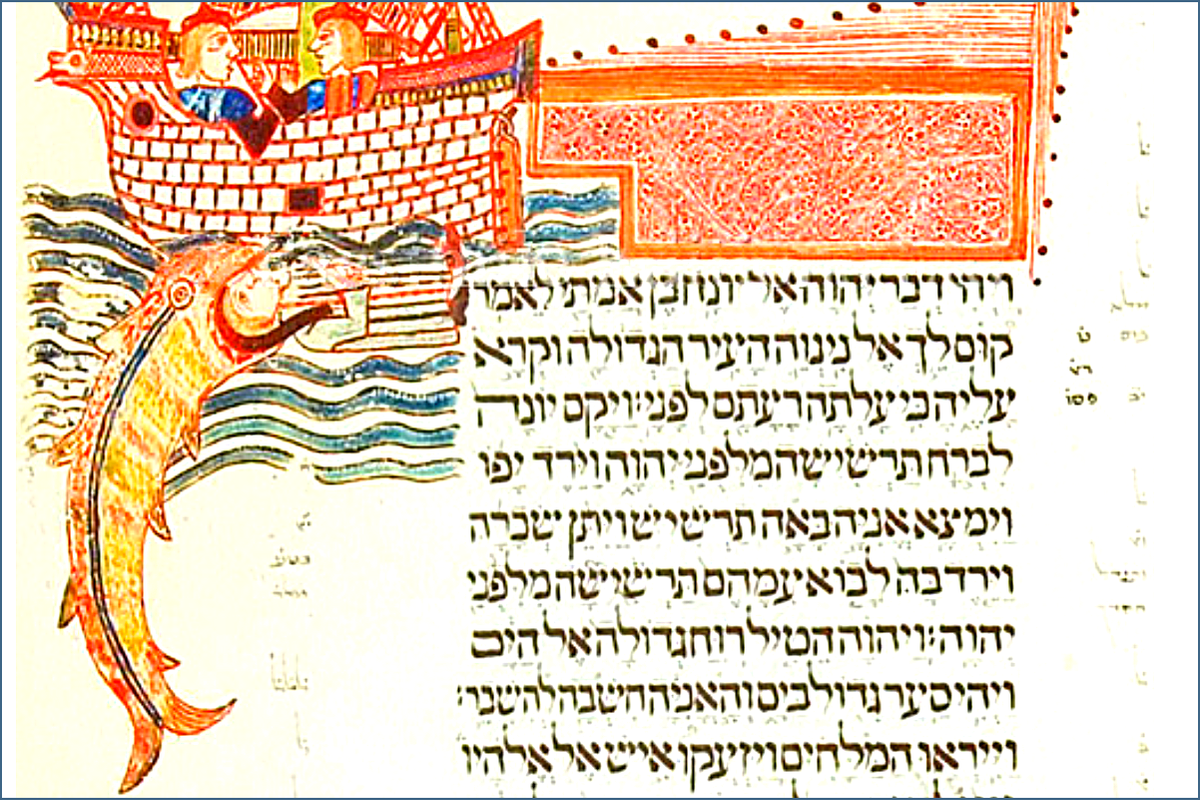 ויהי דבר יהוה אל יונה בן אמתי לאמר
קום לך אל נינוה העיר הגדולה וקרא
עליה כי עלתה רעתם לפני׃ ויקם יונה
לברח תרשישה מלפני יהוה וירד יפו
וימצא אניה באה תרשיש ויתן שכרה
וירד בה לבוא עמהם תרשישה מלפני
יהוה׃ ויהוה הטיל רוח גדולה אל הים
ויהי סער גדול בים והאניה חשבה להשבר׃
וייראו המלחים ויזעקו איש אל אלהיו